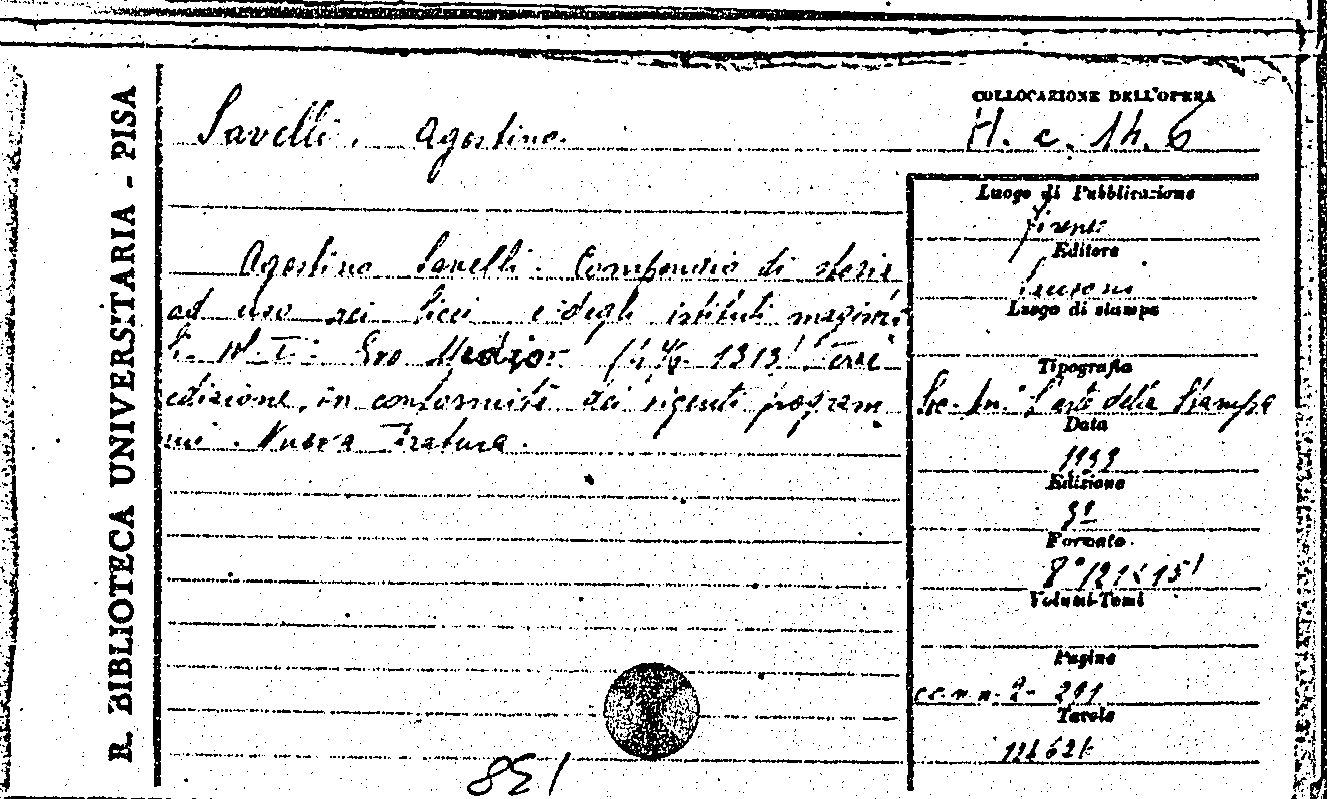 R. BIBLIOTECA UNIVERSITARIA - PISA
Savelli. Agostino.
Agostino Savelli. Compendio di storia
ad uso dei licei e degli istituti magistrali
Evo Medio 1313 Terza
edizione, in conformità dei vigenti program
mi. Nuova Tiratura.
COLLOCAZIONE DELL'OPERA
H. c. 14. 6
Luogo di Pubblicazione
Firenze
Editore
Luogo di stampa
Tipografia
Soc. An. L'arte della Stampa
Data
1933
Edizione
3ª
Formato
8° (21×15)
Volumi-Tomi
Pagine
cc. n. n. 2 - 291
Tavole
851